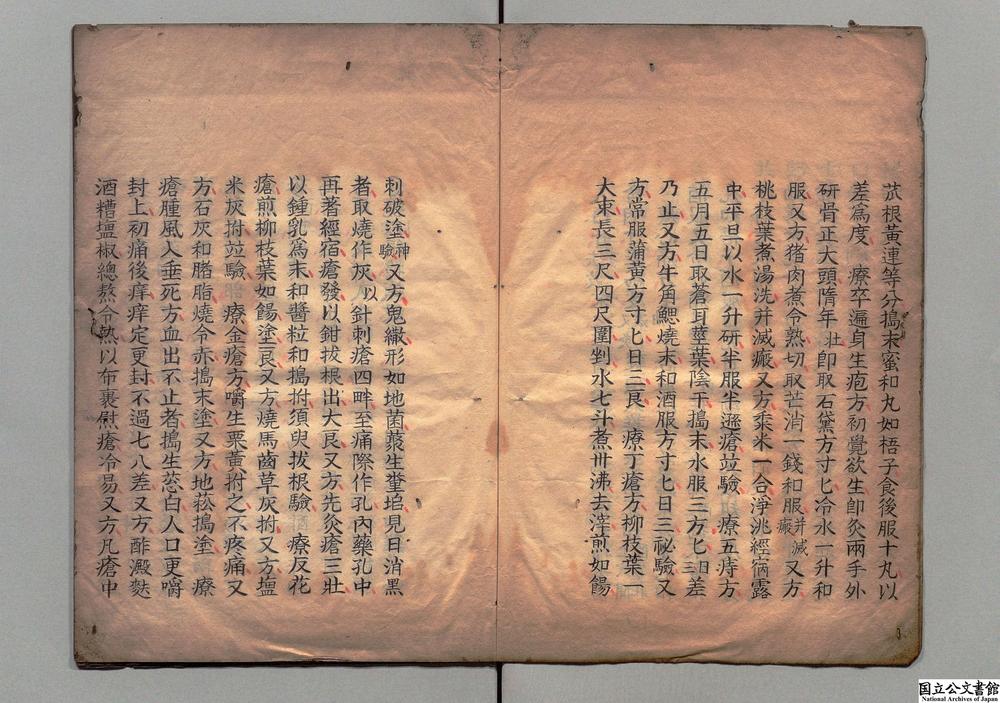 苽根黃連等分搗末蜜和丸如梧子食後服十丸以
差爲度 療卒遍身生疱方初覺欲生卽灸兩手外
研骨正大頭隋年壯卽取石黛方寸匕冷水一升和
服又方猪肉煮令熟切取芒消一錢和服并滅瘢又方
桃枝葉煮湯洗并滅瘢又方黍米一合淨洮經宿露
中平旦以水一升研半服半遜瘡竝驗 療五痔方
五月五日取蒼耳莖葉陰干搗末水服三方匕日三差
乃止又方牛角䚡燒末和酒服方寸匕日三祕驗又
方常服蒲黃方寸匕日三良 療丁瘡方柳枝葉
大束長三尺四尺圍剉水七斗煮卅沸去滓煎如餳
刺破塗神驗又方鬼繖形如地菌藂生糞塢見日消黑
者取燒作灰以針刺瘡四畔至痛際作孔內藥孔中
再著經宿瘡發以鉗拔根出大良又方先灸瘡三壯
以鍾乳爲末和醬粒和搗拊須臾拔根驗 療反花
瘡煎柳枝葉如餳塗良又方燒馬齒草灰拊又方塩
米灰拊竝驗 療金瘡方嚼生栗黃拊之不疼痛又
方石灰和腊脂燒令赤搗末塗又方地菘搗塗 療
瘡腫風入垂死方血出不止者搗生葱白人口更嚼
封上初痛後痒痒定更封不過七八差又方酢澱麩
酒糟塩椒總熬令熱以布裹慰瘡冷易又方凡瘡中
国立公文書館
National Archives of Japan